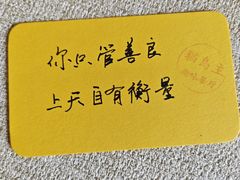 你只管善良
上天自有衡量